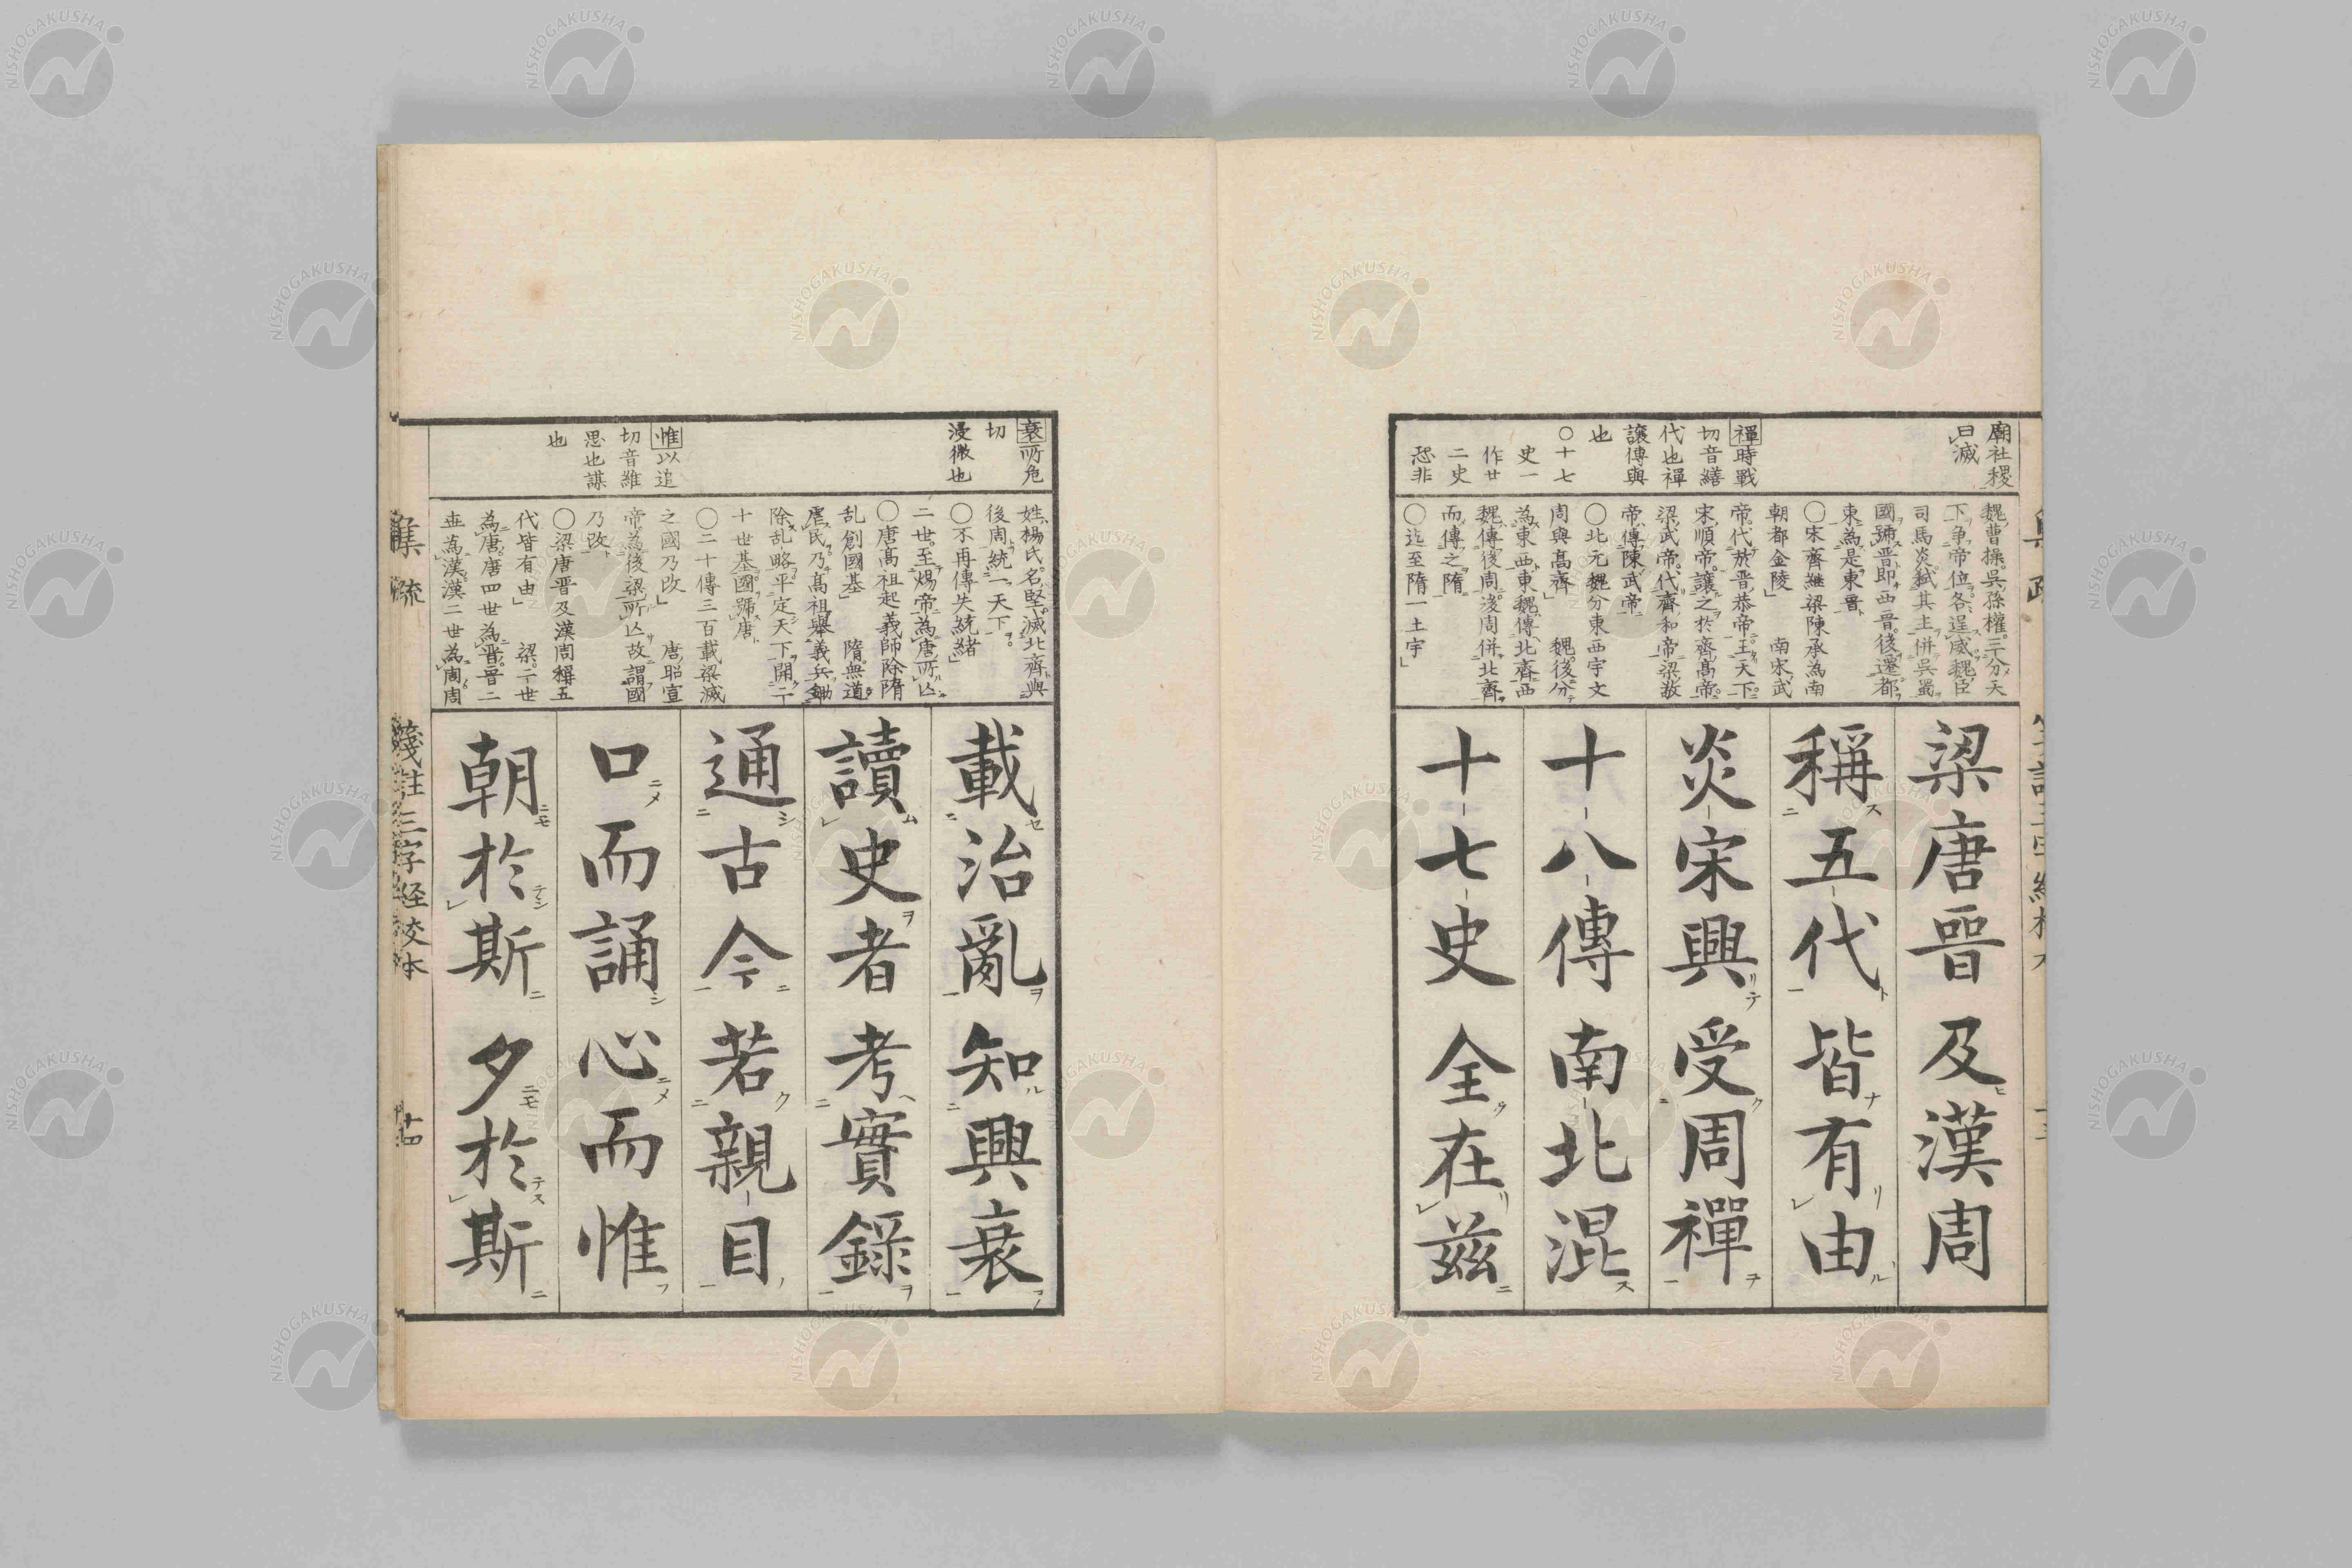 廟社稷
曰滅
禪時戰
切音繕
代也禪
讓傳與
也
○十七
史一
作廿
二史
恐非
魏曹操吳孫權三分天
下争帝位各逞威魏臣
司馬炎弒其主併吳蜀
國號晋即西晋後遷都
東為是東晋
○宋齊継梁陳承為南
朝都金陵」 南宋武
帝代於晋恭帝王天下
宋順帝讓之於齊髙帝
梁武帝代齊和帝梁敬
帝傳陳武帝
○北元魏分東西宇文
周與髙齊」 魏後分
為東西東魏傳北齊西
魏傳後周後周併北齊
而傳之隋
○迨至隋一土宇」
梁唐晋及漢周
稱五代皆有由
炎宋興受周禪
十八傳南北混
十七史全在兹
衰所危
切
浸微也
惟以追
切音維
思也謀
也
姓楊氏名堅滅北齊與
後周統一天下
○不再傳失統緒」
二世至煬帝為唐所亾
○唐髙祖起義師除隋
乱創國基」 隋無道
虐民乃髙祖舉義兵鋤
除乱略平定天下開二
十世基國號唐
○二十傳三百載梁滅
之國乃改」 唐昭宣
帝為後梁所亾故謂國
乃改
○梁唐晋及漢周稱五
代皆有由」 梁二世
為唐唐四世為晋晋二
世為漢漢二世為周周
載治亂知興衰
讀史者考實錄
通古今若親目
口而誦心而惟
朝於斯夕於斯
集疏 箋註三字経校本 十四
NISHOGAKUSHA